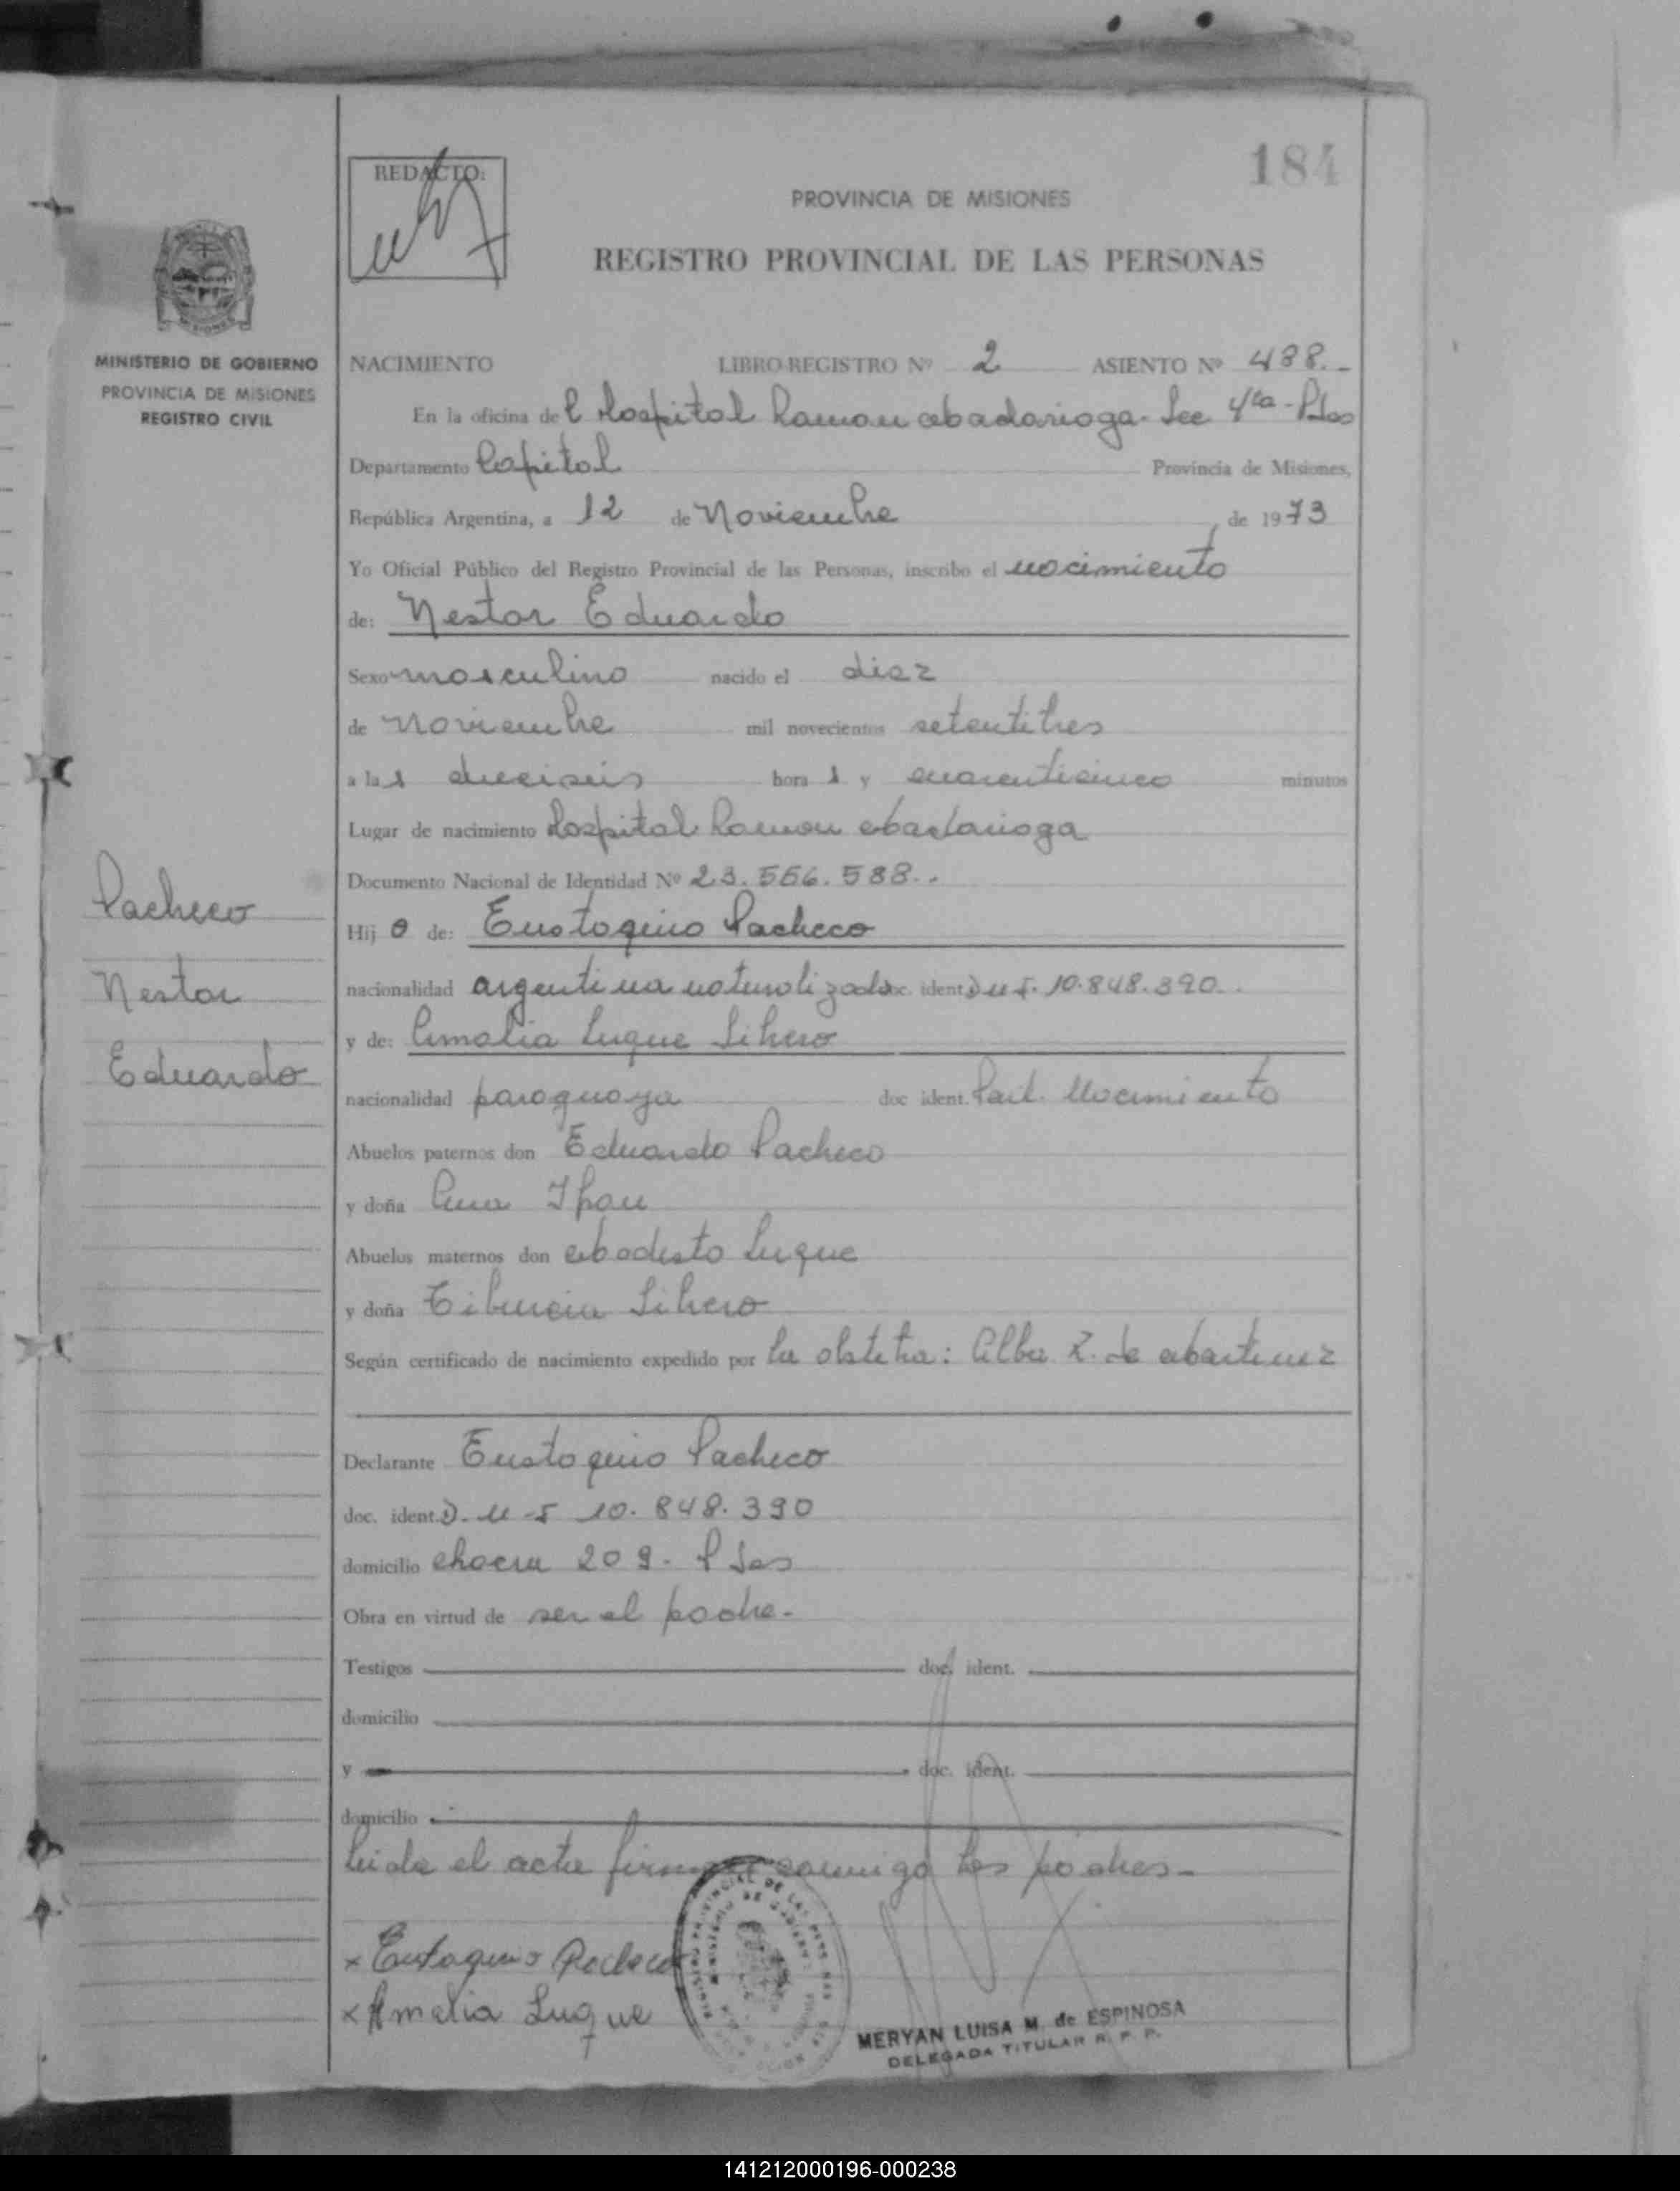 184
REDACTO:
PROVINCIA DE MISIONES
REGISTRO PROVINCIAL DE LAS PERSONAS
MISIONES
MINISTERIO DE GOBIERNO
PROVINCIA DE MISIONES
REGISTRO CIVIL
NACIMIENTO LIBRO REGISTRO Nº 2 ASIENTO Nº 488.-
En la oficina del Hospital Ramon Madariaga - Sec 4ta - Pdas
Departamento Capital Provincia de Misiones,
República Argentina, a 12 de Noviembre, de 1973
Yo Oficial Público del Registro Provincial de las Personas, inscribo el nacimiento
de: Nestor Eduardo
Sexo masculino nacido el diez
de noviembre mil novecientos setentitres
a las dieciseis horas y cuarenticinco minutos
Lugar de nacimiento Hospital Ramon Madariaga
Documento Nacional de Identidad Nº 23.556.588..
Hijo de: Eustaquio Pacheco
nacionalidad argentina naturalizado doc. ident. D.N.I. 10.848.390.
y de: Amalia Luque Silvero
nacionalidad paraguaya doc ident. Part. Nacimiento
Abuelos paternos don Eduardo Pacheco
y doña Ana
Abuelos maternos don Modesto Luque
y doña Tiburcia Silvero
Según certificado de nacimiento expedido por la obstetra: Alba Z. de Martinez
Declarante Eustaquio Pacheco
doc. ident. D.N.I 10.848.390
domicilio chacra 209. Pdas
Obra en virtud de ser el padre.-
Testigos doc. ident.
domicilio
y doc. ident.
domicilio
leida el acta firman conmigo los padres-
Pacheco
Nestor
Eduardo
x Eustaquio Pacheco
x Amalia Luque
MERYAN LUISA M. de ESPINOSA
DELEGADA TITULAR R. P. P.
141212000196-000238